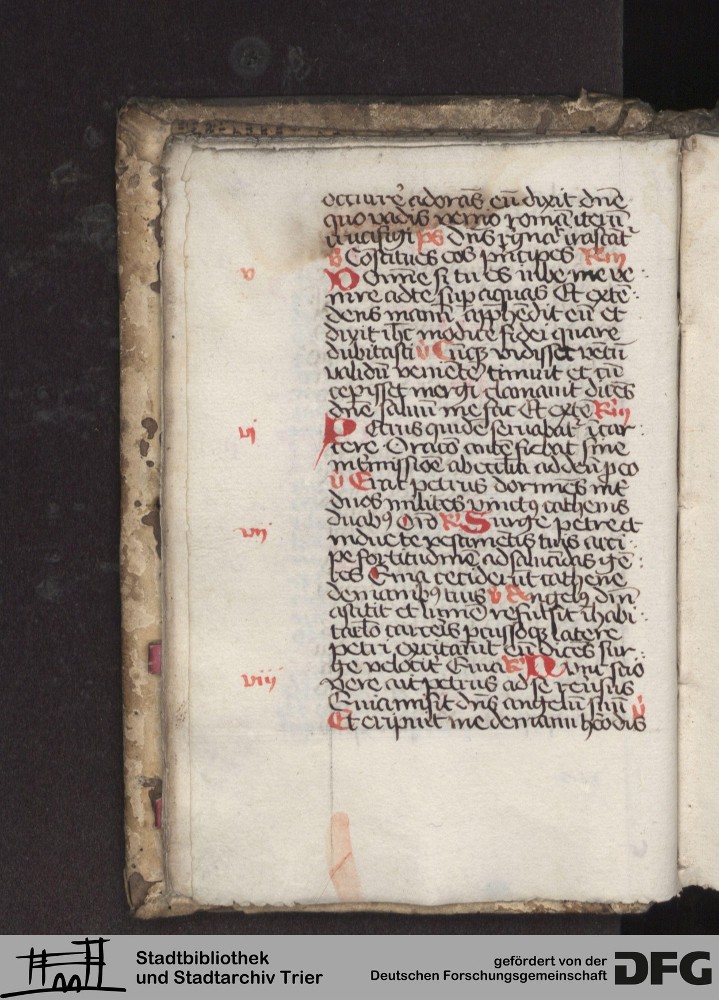 occurrē adorās eū dixit dne
quo vadis venio romā iterū
crucifigi ps Dns regnat irascāt
v Costitues eos principes
v
Domine si tu es iube me ve
nire ad te sup aquas Et exte
dens manū apphēdit eū et
dixit ihc modice fidei quare
dubitasti v Cūq; vidisset vētū
validū veniētē timuit et cū
cepisset mergi clamavit dicēs
dne salvū me fac Et extē
vi
Petrus quidē servabat' ī car
cere Oraco autē fiebat sine
intermissiōe ab ecclia ad deū p eo
v Erat petrus dormiēs int
duos milites vinctus cathenis
duabus Orō R Surge petre et
vii
indue te vestimētis tuis acci
pe fortitudinē ad salvādas gē
tes Quia ceciderūt cathene
de manibus tuis v Angelus dni
astitit et lumē refulsit ī habi
taclo carceris pcussoq; latere
petri excitavit eū dicēs sur
ge velocit Quia R Nunc scio
viii
vere ait petrus ad se reversus
Quia misit dns angelū suū v
Et eripuit me de manu herodis
Stadtbibliothek
und Stadtarchiv Trier
gefördert von der
Deutschen Forschungsgemeinschaft
DFG